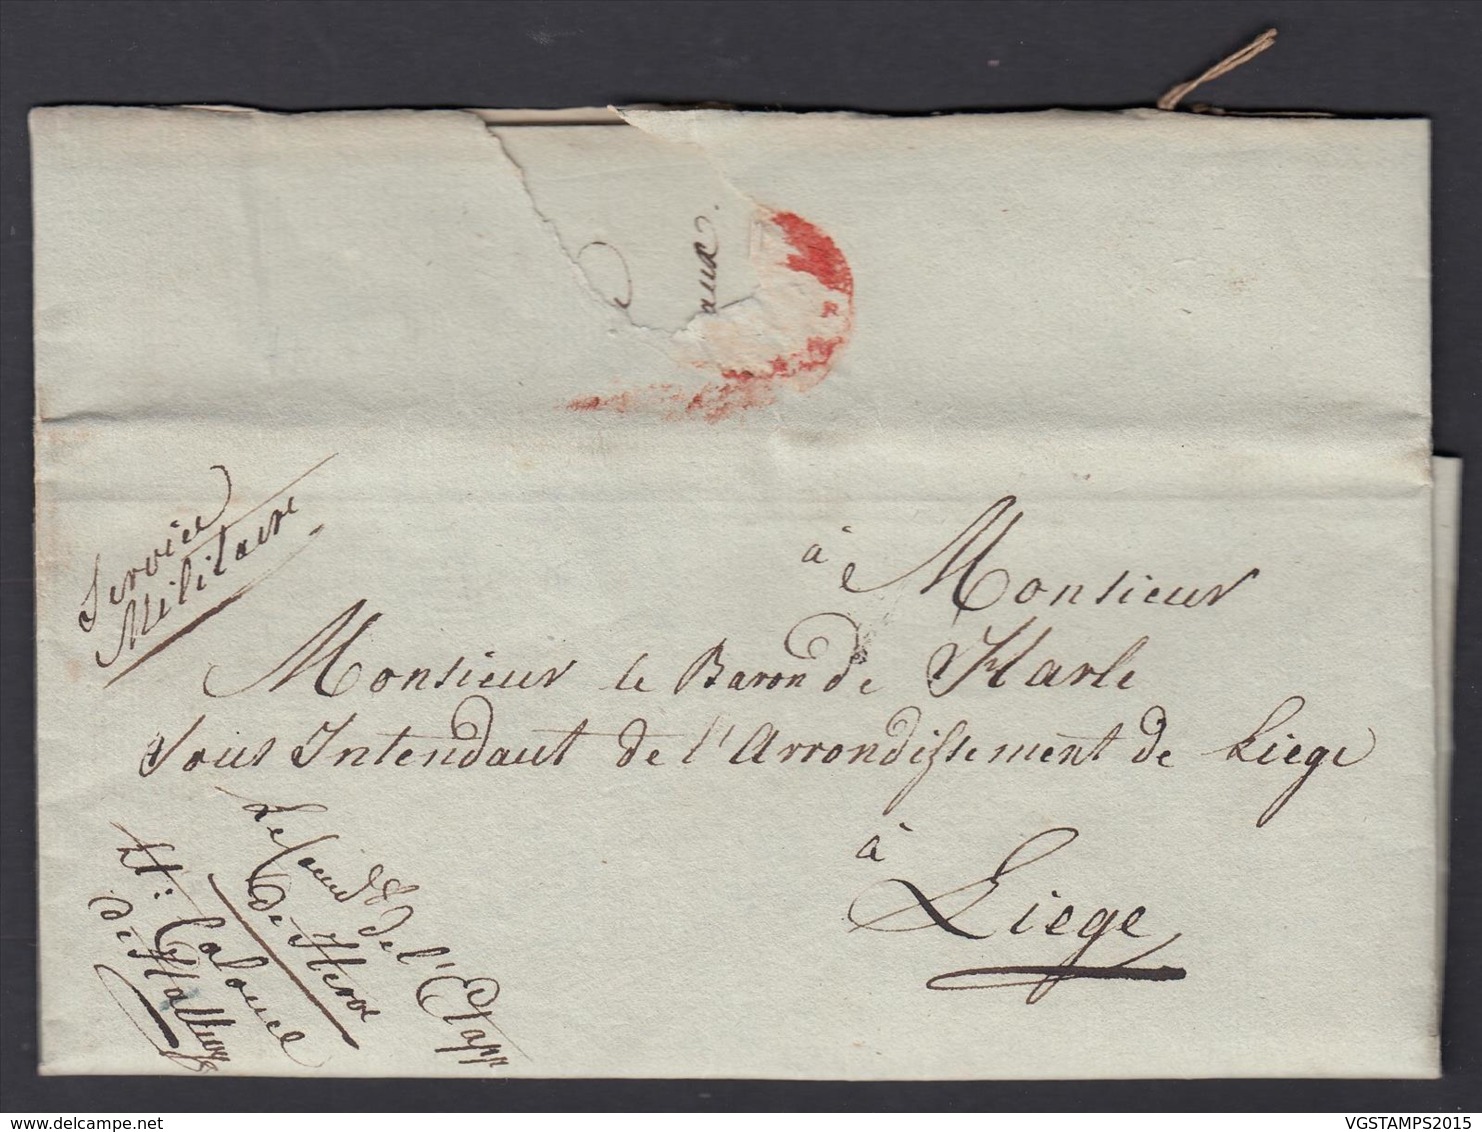 aux.
Service
Militaire
à Monsieur
Monsieur le Baron de Harle
Sous Intendant de l'Arrondissement de Liege
à
Liege
Le Comd de l'Etapp
de Herve
Lt: Colonel
De
delcampe.net
VGSTAMPS2015